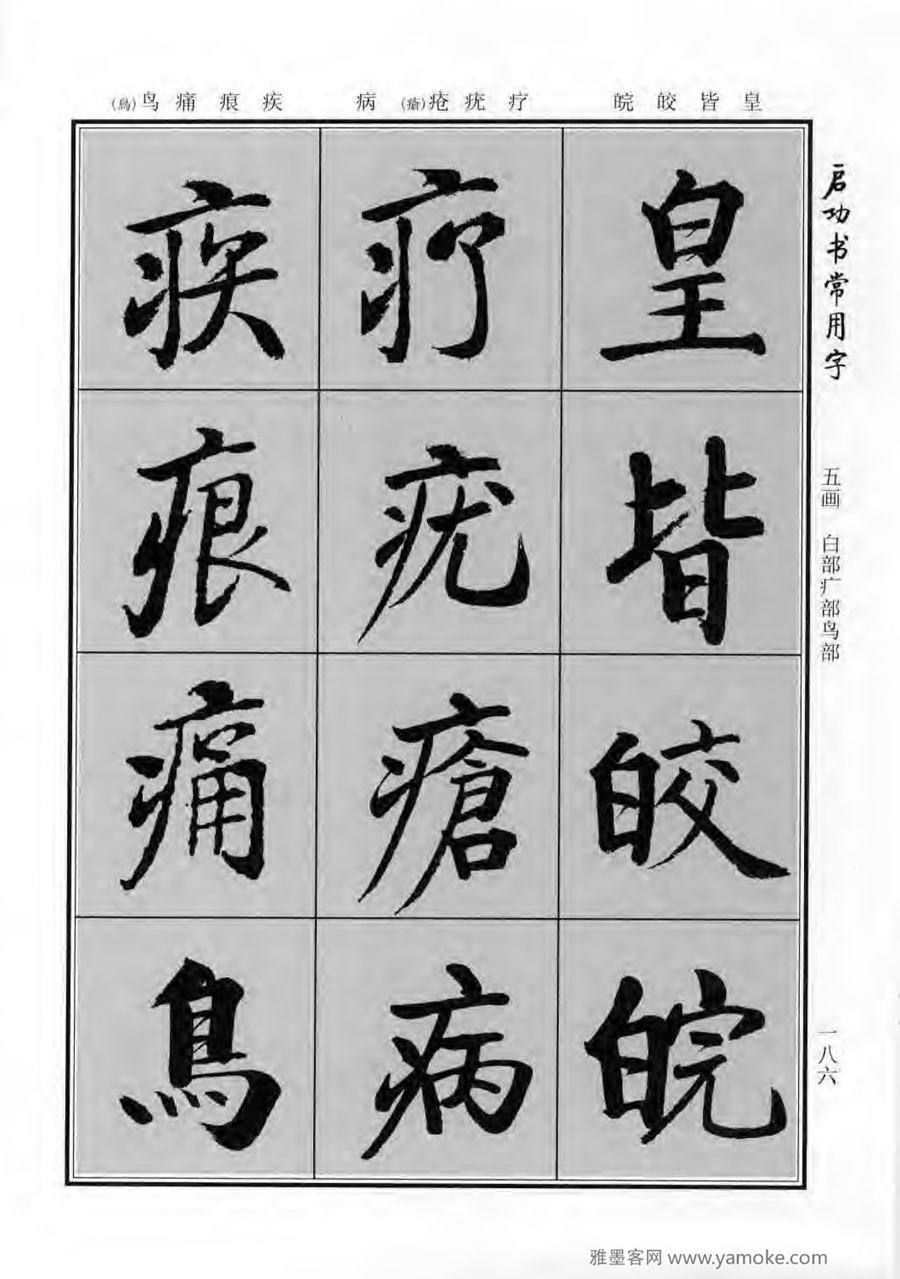 皇皆皎皖
疗疣疮(瘡)病
疾痕痛鸟(鳥)
启功书常用字
五画 白部疒部鸟部
一八六
皇
皆
皎
皖
疗
疣
瘡
病
疾
痕
痛
鳥
雅墨客网 www.yamoke.com